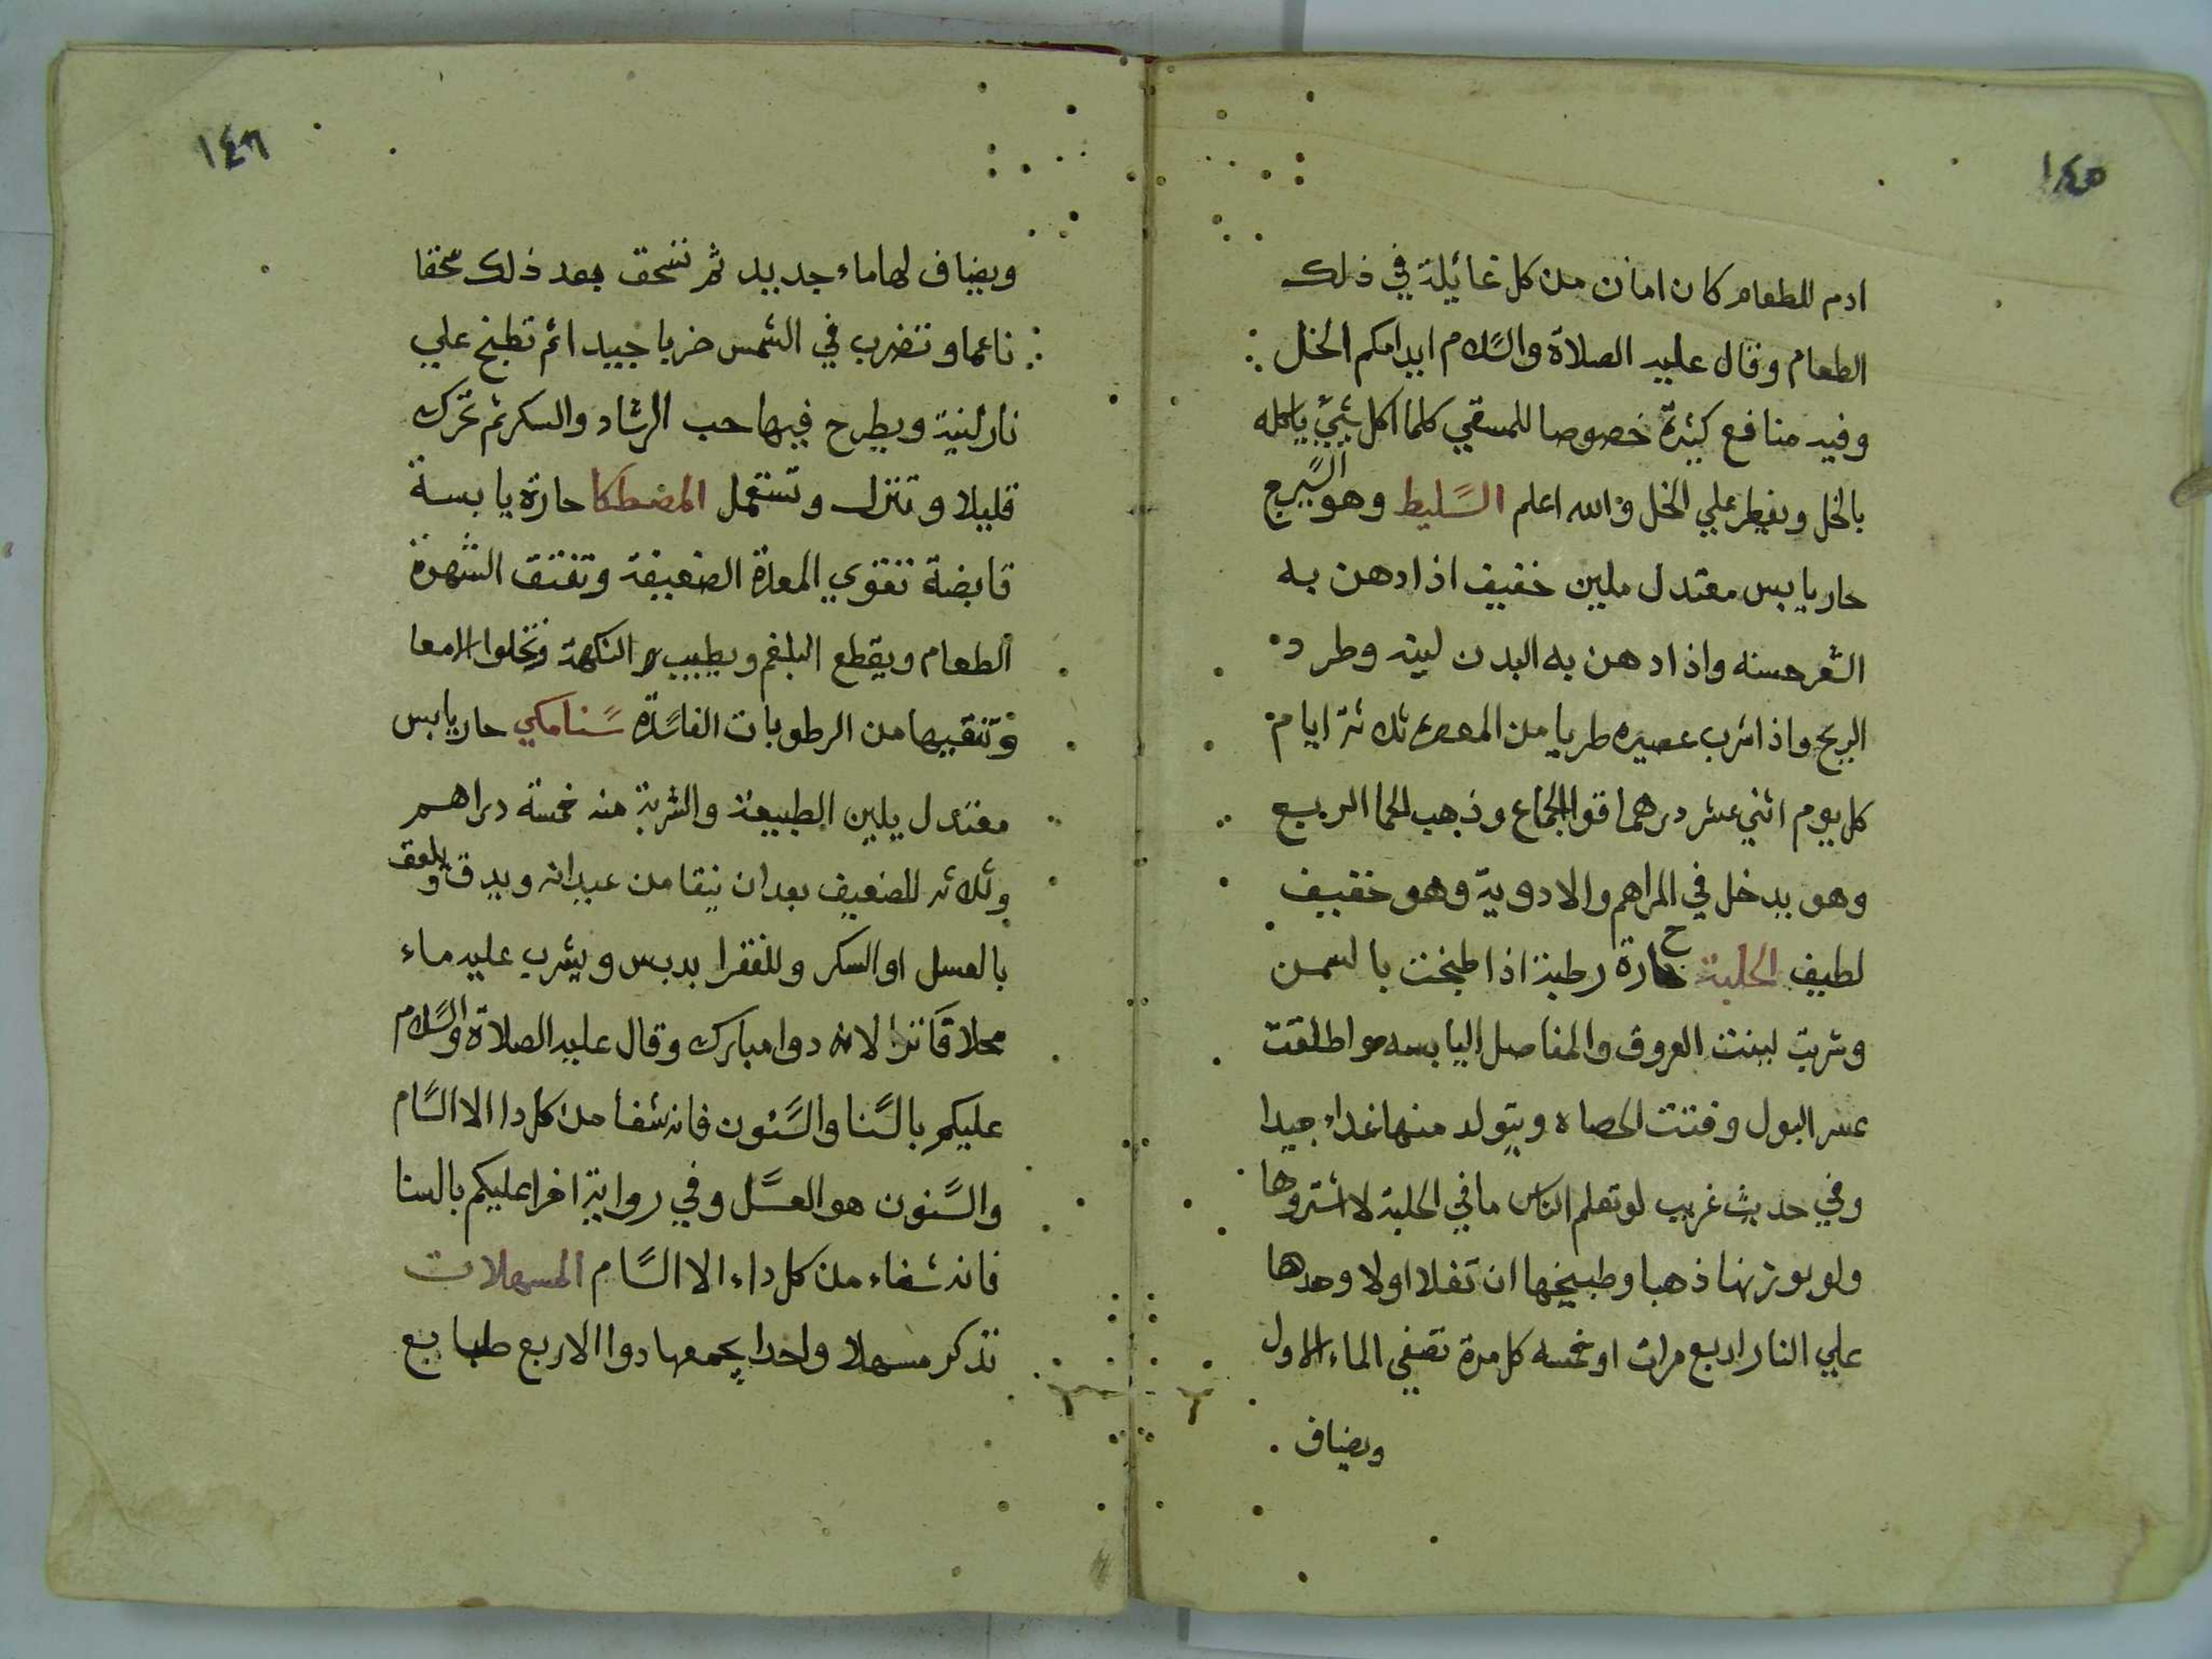 ١٤٥
ادم للطعام كان امان من كل غائيلة في ذلك
الطعام وقال عليه الصلاة والسلام ايدامكم الخل
وفيه منافع كثيرة خصوصا للمسقي كلما اكل شيئ ياكله
بالخل ويفطر علي الخل والله اعلم السليط وهو السيرج
حار يابس معتدل ملين خفيف اذا دهن به
الشعر حسنه واذا دهن به البدن لينه وطرد
الريح واذا شرب عصيره طريا من المعصره ثلاثة ايام
كل يوم اثني عشر درهما قوا الجماع وذهب الحما الربع
وهو يدخل في المراهم والادوية وهو خفيف
لطيف الحلبة حارة رطبة اذا طبخت بالسمن
وشربت لينت العروق والمفاصل اليابسه واطلقت
عسر البول وفتت الحصاه ويتولد منها غداء جيدا
وفي حديث غريب لو تعلم الناس ما في الحلبة لاشتروها
ولو بوزنها ذهبا وطبيخها ان تغلا اولا وحدها
علي النار اربع مرات او خمسه كل مرة تصفي الماء الاول
ويضاف
١٤٦
ويضاف لها ماء جديد ثم تسحق بعد ذلك سحقا
ناعما وتضرب في الشمس ضربا جييدا ثم تطبخ علي
نار لينة ويطرح فيها حب الرشاد والسكر ثم تحرك
قليلا وتنزل وتستعمل المضطكا حارة يابسة
قابضة تقوي المعدة الضعيفة وتفتق الشهوة
الطعام ويقطع البلغم ويطييب النكهة وتخلوا الامعا
وتنقيها من الرطوبات الفاسدة سنا مكي حار يابس
معتدل يلين الطبيعة والشربة منه خمسة دراهم
وثلاثه للضعيف بعد ان ينقا من عيدانه ويدق ويلعق
بالعسل او السكر وللفقرا بدبس ويشرب عليه ماء
محلا فاترا لانه دوا مبارك وقال عليه الصلاة والسلام
عليكم بالسنا والسنون فانه شفا من كل دا الا السام
والسنون هو العسل وفي رواية اخرا عليكم بالسنا
فانه شفاء من كل داء الا السام المسهلات
نذكر مسهلا واحدا يجمعها دوا الاربع طبايع